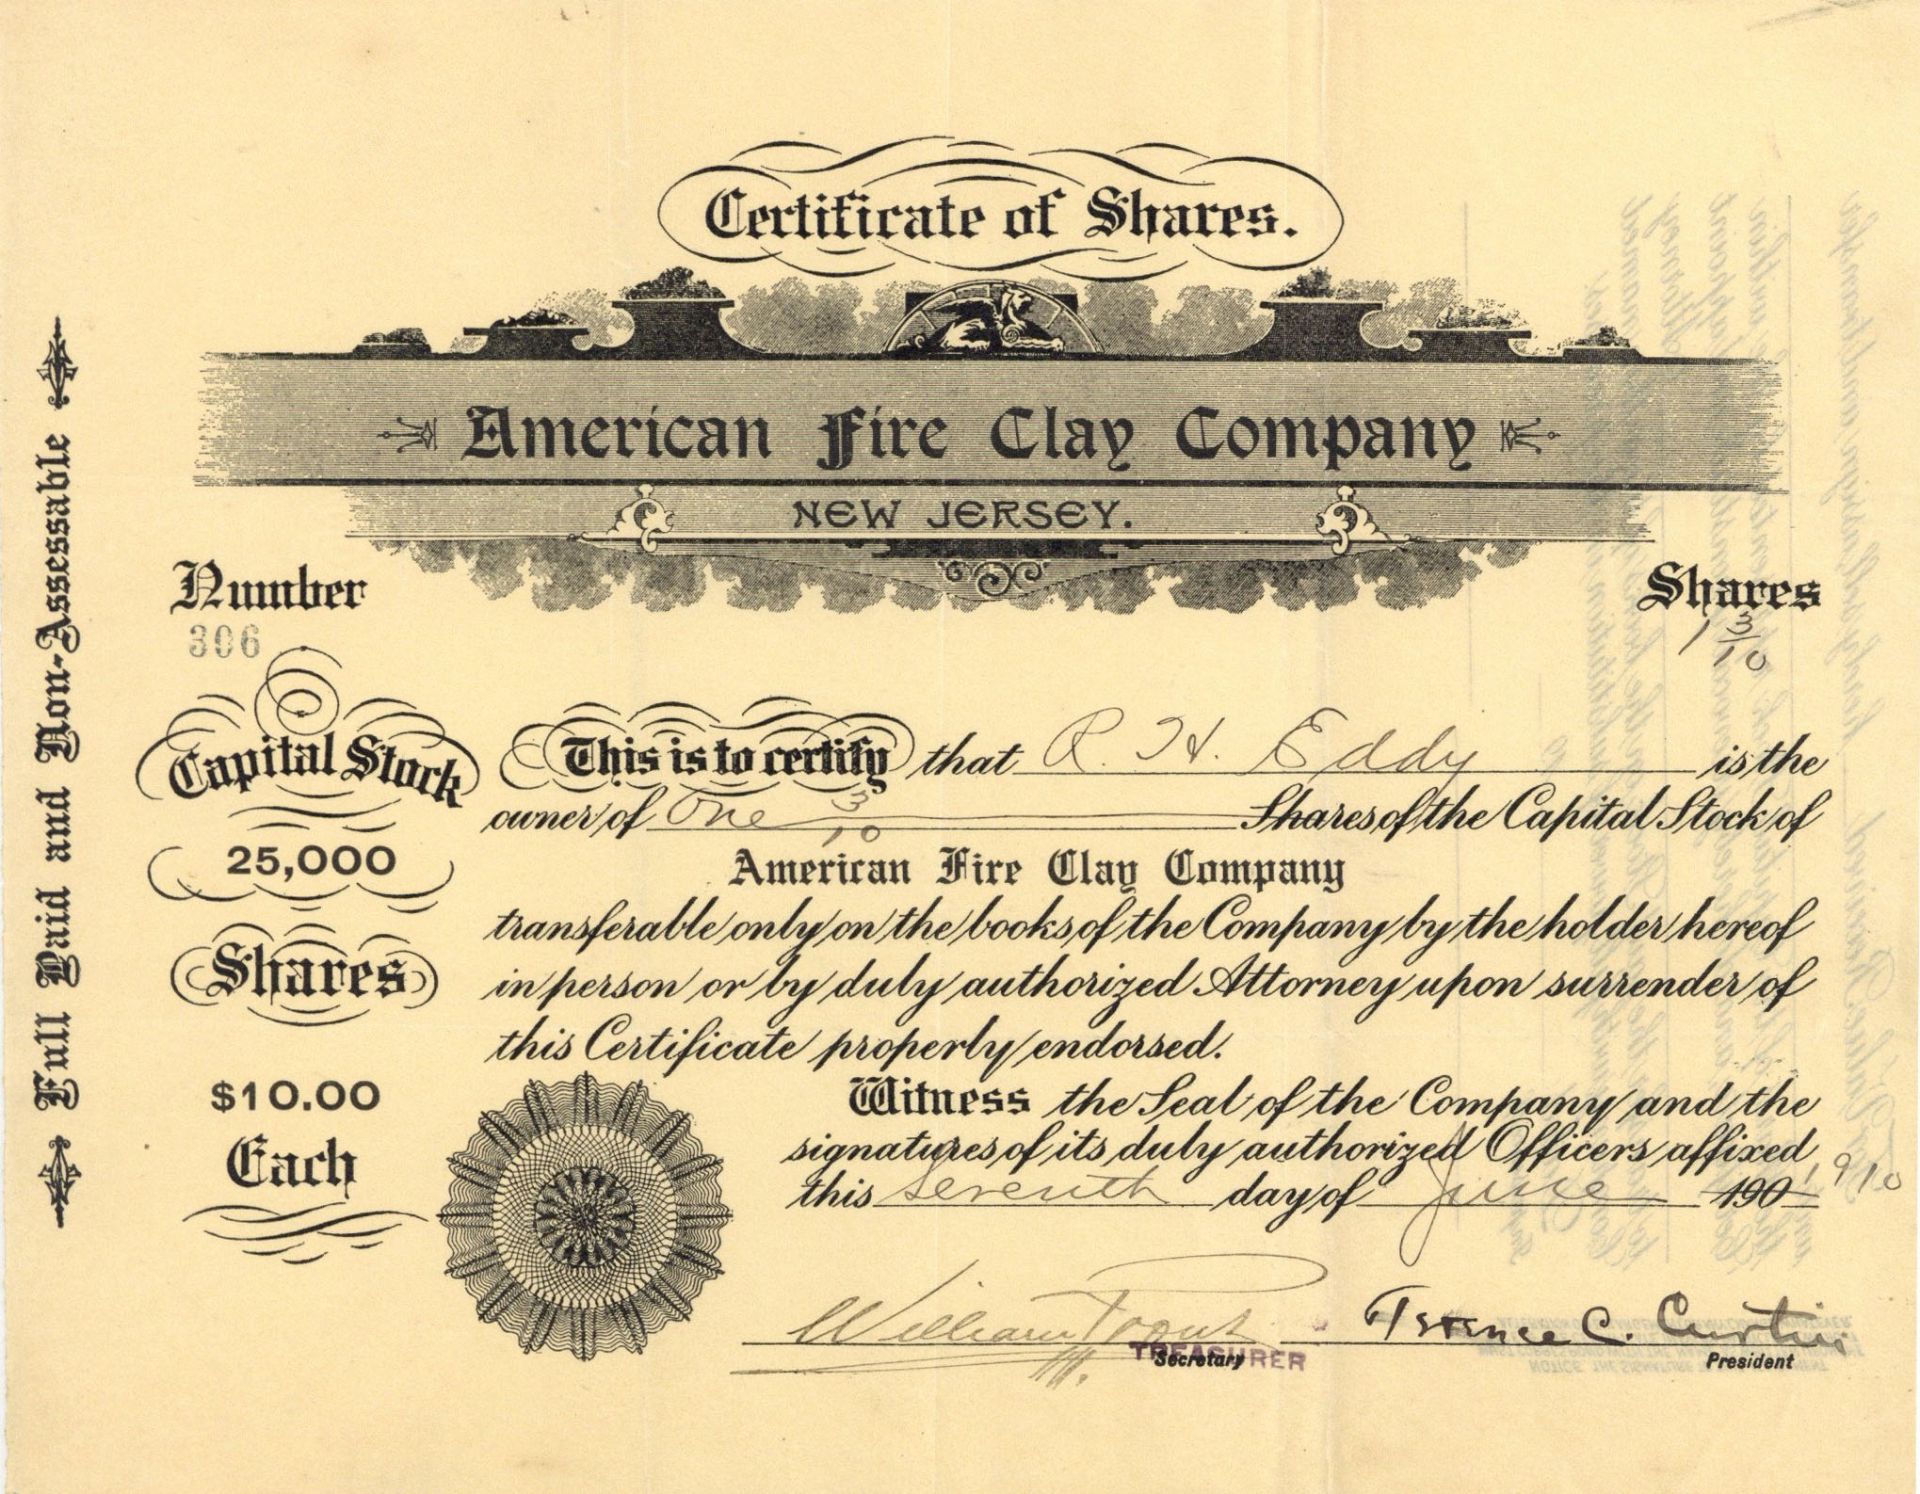 Certificate of Shares.
American Fire Clay Company
NEW JERSEY.
Number
306
Shares
1 3/10
Full Paid and Non-Assessable
Capital Stock
25,000
Shares
$10.00
Each
This is to certify that R. H. Eddy is the
owner of One 3/10 Shares of the Capital Stock of
American Fire Clay Company
transferable only on the books of the Company by the holder hereof
in person or by duly authorized Attorney upon surrender of
this Certificate properly endorsed.
Witness the Seal of the Company and the
signatures of its duly authorized Officers affixed
this Seventh day of June 190 1910
William Terence C. Curtis
TREASURER
Secretary President